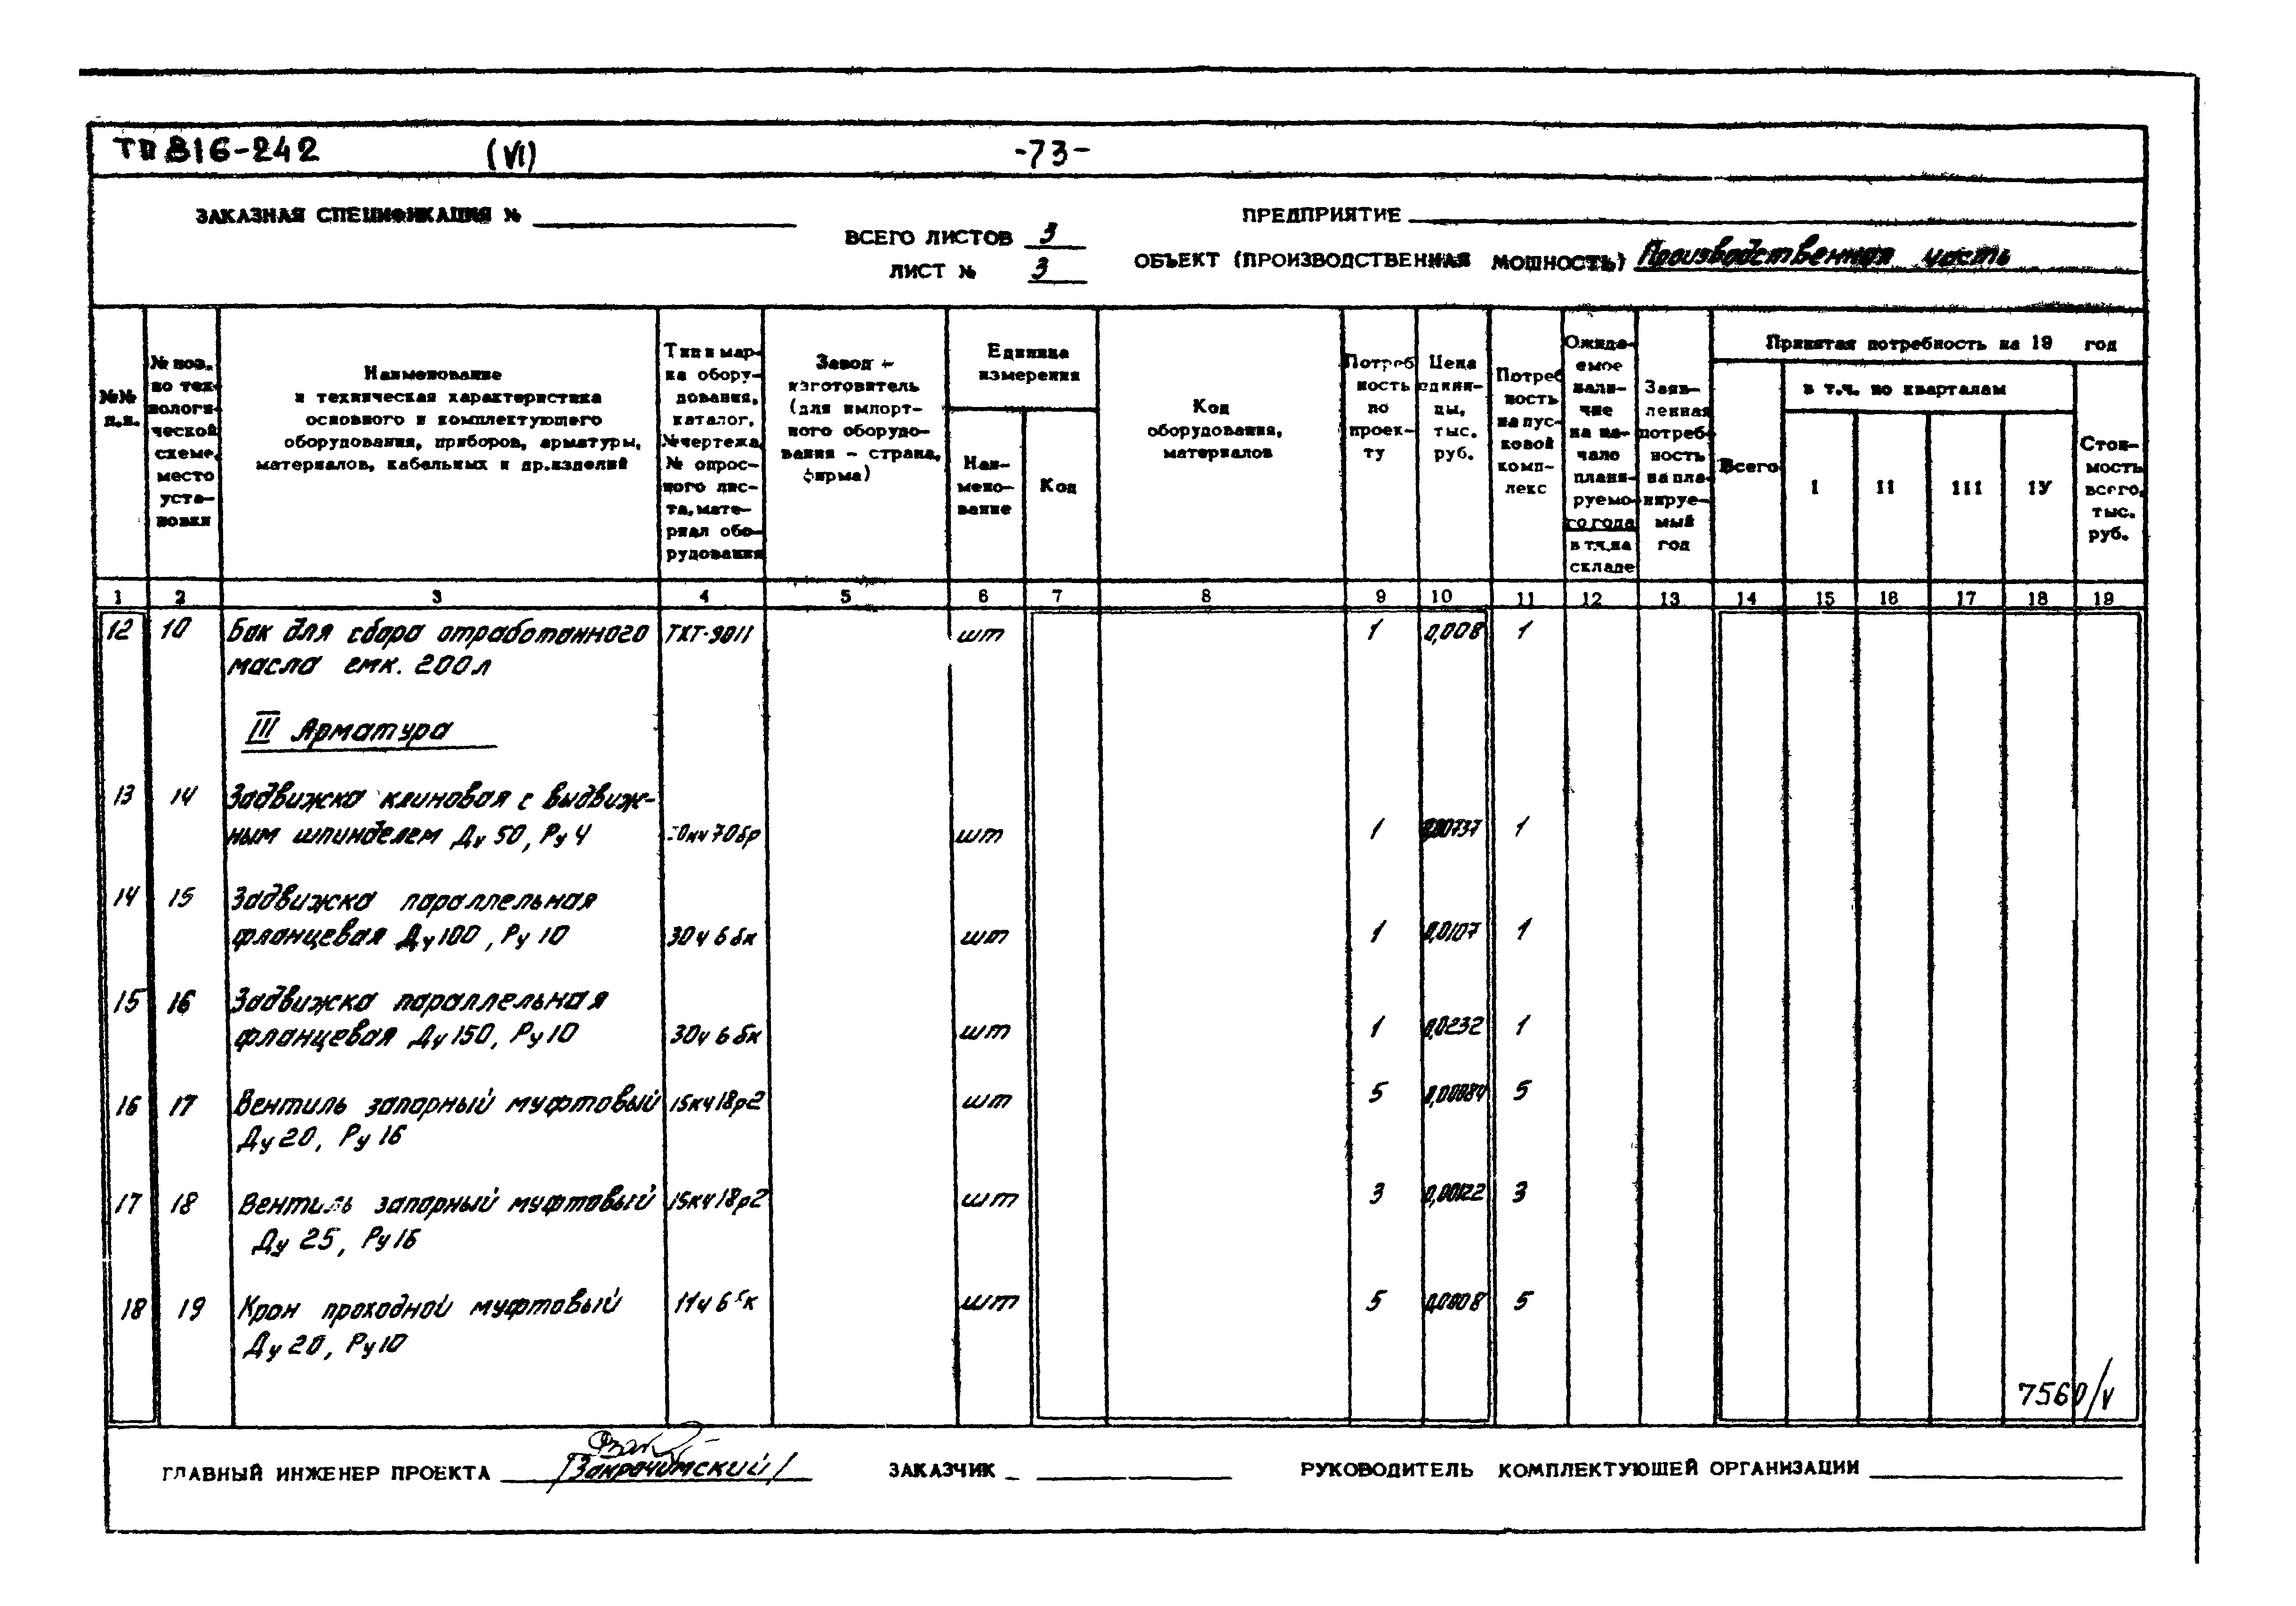 ТП 816-242 (VI) -73-
ЗАКАЗНАЯ СПЕЦИФИКАЦИЯ №
ПРЕДПРИЯТИЕ
ВСЕГО ЛИСТОВ 3
ЛИСТ № 3
ОБЪЕКТ (ПРОИЗВОДСТВЕННАЯ МОШНОСТЬ) Производственная часть
№№
п.п.
№ поз.
по тех-
нологи-
ческой
схеме,
место
уста-
новки
Наименование
и техническая характеристика
основного и комплектующего
оборудования, приборов, арматуры,
материалов, кабельных и др.изделий
Тип и мар-
ка обору-
дования,
каталог,
№чертежа,
№ опрос-
ного лис-
та, мате-
риал обо-
рудования
Завод -
изготовитель
(для импорт-
ного оборудо-
вания - страна,
фирма)
Единица
измерения
Наи-
мено-
вание
Код
Код
оборудования,
материалов
Потреб
ность
по
проек-
ту
Цена
едини-
цы,
тыс.
руб.
Потреб
ность
на пус-
ковой
комп-
лекс
Ожида-
емое
нали-
чие
на на-
чало
плани-
руемо-
го года
в т.ч.на
складе
Заяв-
ленная
потреб-
ность
на пла-
нируе-
мый
год
Принятая потребность на 19 год
Всего
в т.ч. по кварталам
I II III IУ
Стои-
мость
всего,
тыс.
руб.
1 2 3 4 5 6 7 8 9 10 11 12 13 14 15 16 17 18 19
12 10 Бак для сбора отработанного ТХТ-9011 шт 1 0,008 1
масла емк. 200л
III Арматура
13 14 Задвижка клиновая с выдвиж-
ным шпинделем Ду 50, Ру 4 шт 1 1
14 15 Задвижка параллельная
фланцевая Ду100, Ру 10 30ч 6 бк шт 1 0,0107 1
15 16 Задвижка параллельная
фланцевая Ду 150, Ру10 30ч 6 бк шт 1 0,0232 1
16 17 Вентиль запорный муфтовый 15кч18р2 шт 5 5
Ду 20, Ру 16
17 18 Вентиль запорный муфтовый 15кч18р2 шт 3 0,00122 3
Ду 25, Ру16
18 19 Кран проходной муфтовый 11ч 6 бк шт 5 5
Ду 20, Ру10
7560/V
ГЛАВНЫЙ ИНЖЕНЕР ПРОЕКТА /Закрочимский/ ЗАКАЗЧИК РУКОВОДИТЕЛЬ КОМПЛЕКТУЮШЕЙ ОРГАНИЗАЦИИ